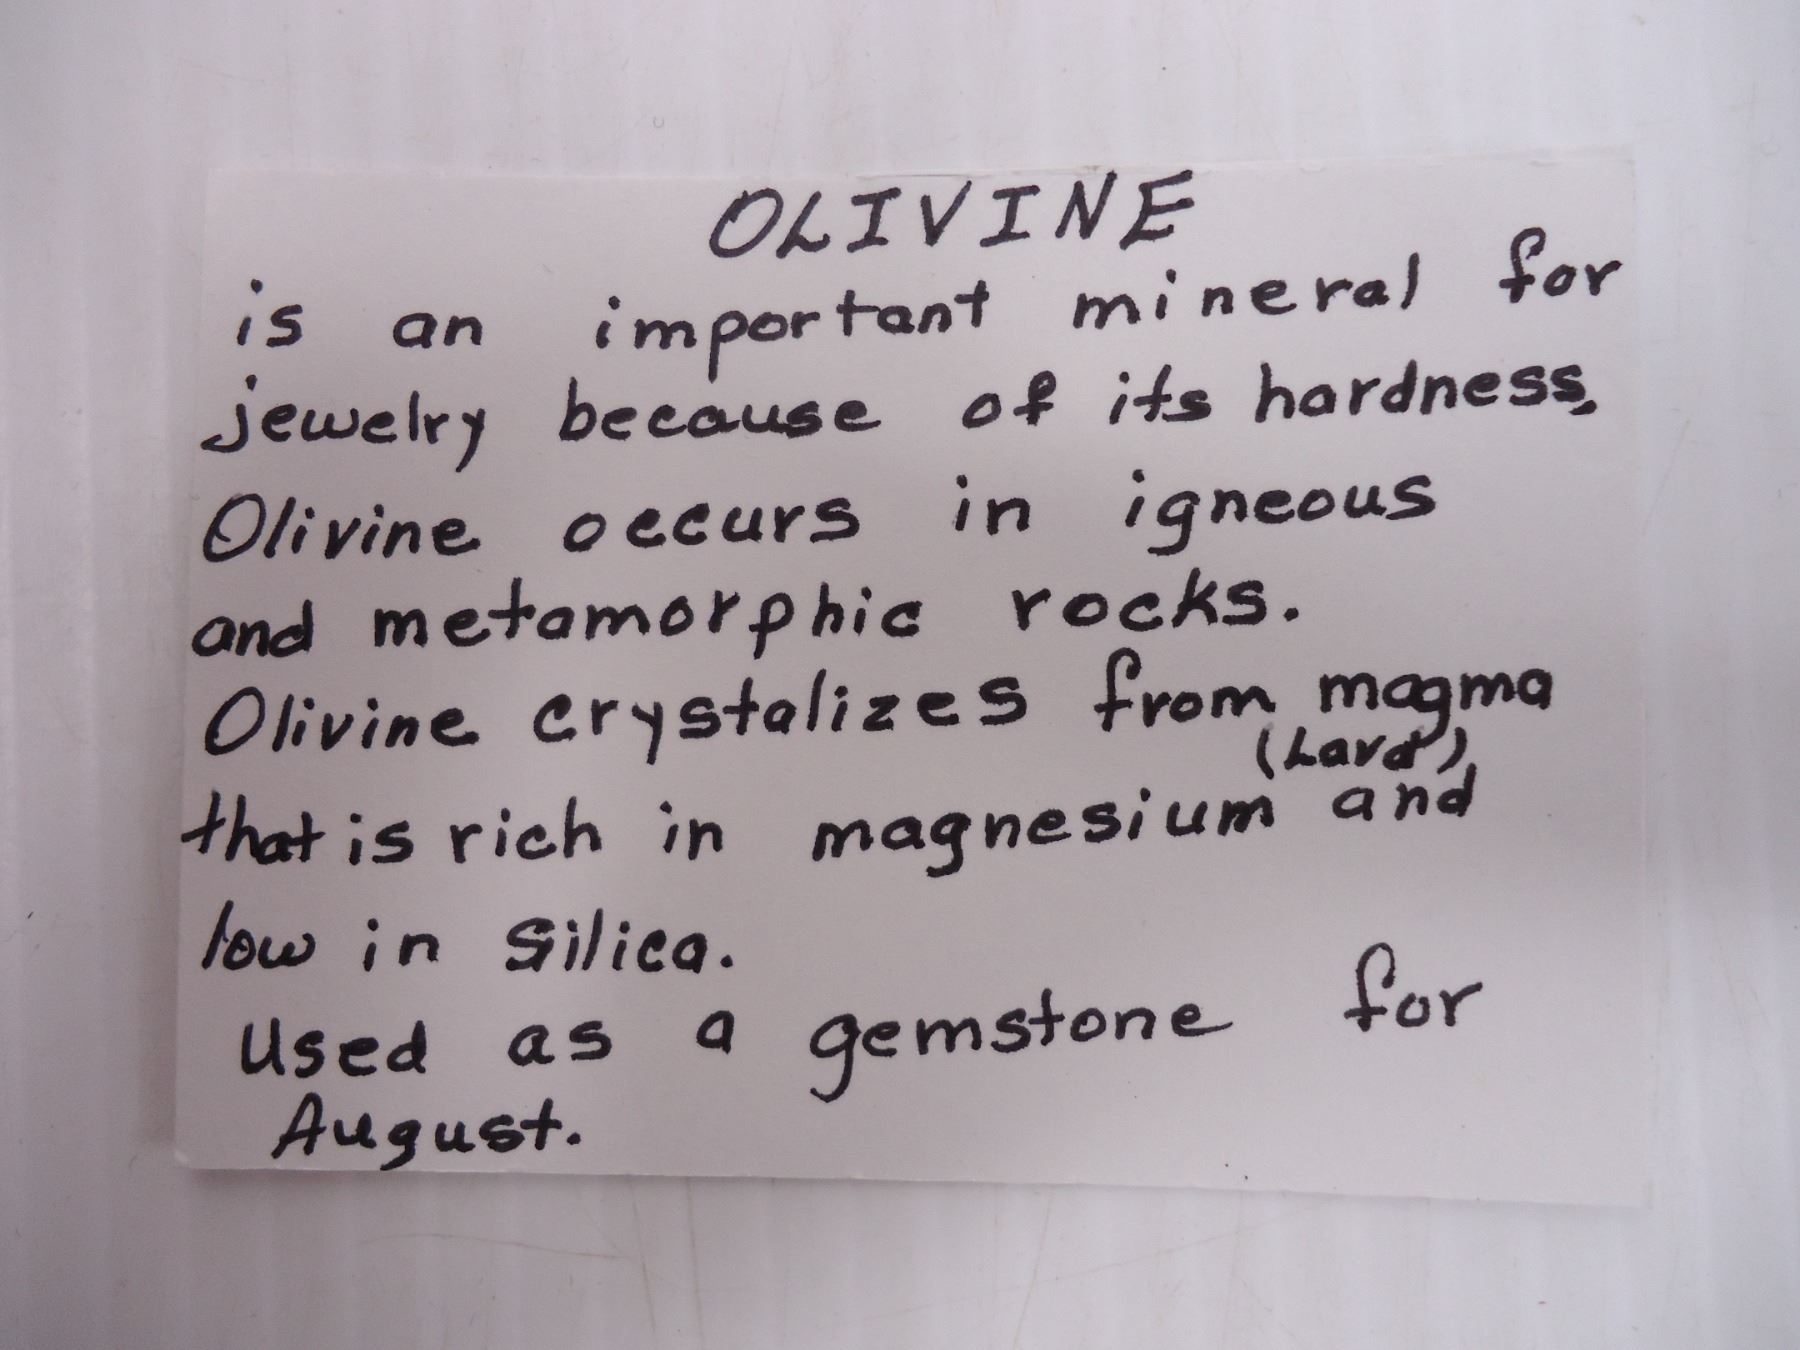 OLIVINE
is an important mineral for
jewelry because of its hardness.
Olivine occurs in igneous
and metamorphic rocks.
Olivine crystalizes from magma
(Lava)
that is rich in magnesium and
low in Silica.
Used as a gemstone for
August.